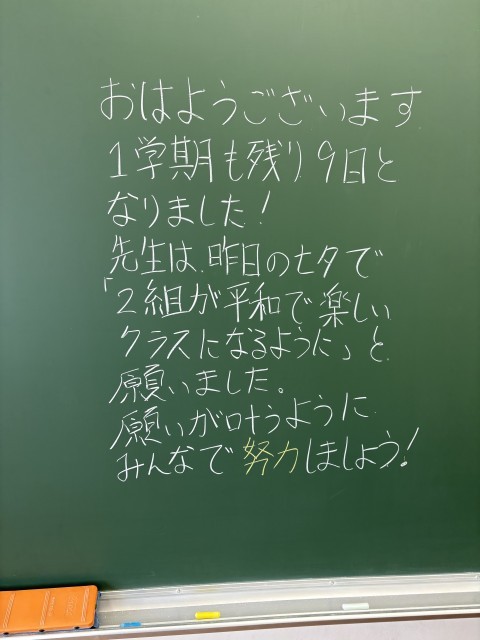 おはようございます
1学期も残り9日と
なりました!
先生は、昨日の七夕で
「2組が平和で楽しい
クラスになるように」と
願いました。
願いが叶うように
みんなで努力しましょう!